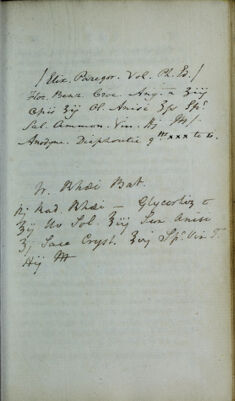 / Elix. Paregor. Vol. Ph. Ed. /
Flor. Benz. Croc. Ang. - a ʒiij
Opii ʒij Ol. Anisi ʒſs Spt.
Sal. Ammon. Vin. ℔j M /-
Anodyne. Diaphoretic gtt xxx to
Tr. Rhæi Bat.
℞ Rad. Rhæi — Glycerhiz
ʒij Uv Sol. ʒiij Sem Anise
ʒj Sacc Cryst. ʒvj Spt. Vin T.
℔ij M